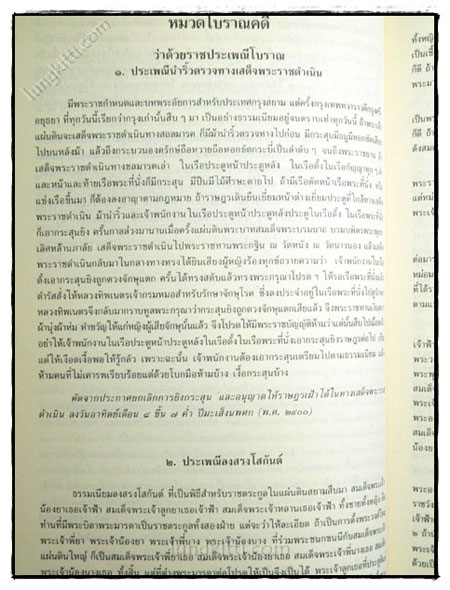 หมวดโบราณคดี
ว่าด้วยราชประเพณีโบราณ
๑. ประเพณีนำริ้วตรวจทางเสด็จพระราชดำเนิน
มีพระราชกำหนดและบทพระอัยการสำหรับประเทศกรุงสยาม แต่ครั้งกรุงเทพทวาราวดีกรุงศรี
อยุธยา ที่ทุกวันนี้เรียกว่ากรุงเก่านั้นสืบ ๆ มา เป็นอย่างธรรมเนียมอยู่จนตราบเท่าทุกวันนี้ ถ้าพระเจ้า
แผ่นดินจะเสด็จพระราชดำเนินทางสถลมารค ก็มีม้านำริ้วตรวจทางไปก่อน มีกระสุนมีธนูมีหอกซัดเสียบ
ไปบนหลังม้า แล้วถึงกระบวนองครักษ์ถือหวายถือหอกขัดกระบี่เป็นลำดับ ๆ จนถึงพระราชยาน
เสด็จพระราชดำเนินทางชลมารคเล่า ในเรือประตูหน้าประตูหลัง ในเรือดั้งในเรือกัญญาทุก ๆ
และหน้าและท้ายเรือพระที่นั่งก็มีกระสุน มีปืนมีไม้ศีรษะตายไป ถ้ามีเรือตัดหน้าเรือพระที่นั่ง
แข่งเรือขึ้นมา ก็ต้องลงอาญาตามกฎหมาย ถ้าราษฎรเดินยืนเยี่ยมหน้าต่างเยี่ยมประตูที่ใกล้ทางเสด็จ
พระราชดำเนิน ม้านำริ้วและเจ้าพนักงานในเรือประตูหน้าประตูหลังประตูในเรือดั้ง ในเรือพระที่นั่ง
ก็เอากระสุนยิง ครั้นกาลล่วงมานานเมื่อครั้งแผ่นดินพระบาทสมเด็จพระบรมนาถ บรมบพิตรพระพุทธ
เลิศหล้านภาลัย เสด็จพระราชดำเนินไปพระราชทานพระกฐิน ณ วัดหนัง ณ วัดนางนอง แล้วเสด็จ
พระราชดำเนินกลับมาในกลางทางทรงได้ยินเสียงผู้หญิงร้องทุกข์ถวายความว่า เจ้าพนักงานในเรือ
ดั้งเอากระสุนยิงถูกดวงจักษุแตก ครั้นได้ทรงสดับแล้วทรงพระกรุณาโปรด ฯ ให้รอเรือพระที่นั่ง
ดำรัสสั่งให้หลวงทิพเนตรเจ้ากรมหมอสำหรับรักษาจักษุโรค ซึ่งลงประจำอยู่ในเรือพระที่นั่งไปดู
หลวงทิพเนตรจึงกลับมากราบทูลพระกรุณาว่ากระสุนยิงถูกดวงจักษุแตกเสียแล้ว จึงพระราชทานเงินตรา
ผ้านุ่งผ้าห่ม ทำขวัญให้แก่หญิงผู้เสียจักษุนั้นแล้ว จึงโปรดให้มีพระราชบัญญัติห้ามว่าแต่นั้นสืบไปเมื่อหน้า
อย่าให้เจ้าพนักงานในเรือประตูหน้าเรือประตูหลังในเรือดั้งในเรือพระที่นั่งเอากระสุนยิงราษฎรต่อไป
แต่ให้เงือดเงื้อพอให้รู้กลัว เพราะฉะนั้น เจ้าพนักงานต้องเอากระสุนเตรียมไปตามธรรมเนียม
ห้ามคนที่ไม่เคารพเรียบร้อยแต่ด้วยโบกมือห้ามบ้าง เงื้อกระสุนบ้าง
คัดจากประกาศยกเลิกการยิงกระสุน และอนุญาตให้ราษฎรเฝ้าได้ในทางเสด็จพระราช
ดำเนิน ลงวันอาทิตย์เดือน ๘ ขึ้น ๗ ค่ำ ปีมะเส็งนพศก (พ.ศ. ๒๔๐๐)
๒. ประเพณีลงสรงโสกันต์
ธรรมเนียมลงสรงโสกันต์ ที่เป็นพิธีสำหรับราชตระกูลในแผ่นดินสยามสืบมา สมเด็จพระเจ้า
น้องยาเธอเจ้าฟ้า สมเด็จพระเจ้าลูกยาเธอเจ้าฟ้า สมเด็จพระเจ้าหลานเธอเจ้าฟ้า ทั้งชายทั้งหญิง
ท่านที่มีพระบิดาพระมารดาเป็นราชตระกูลทั้งสองฝ่าย แต่จะว่าให้ละเอียด ถ้าเป็นการตั้งพระวงศ์ใหม่
พระเจ้าพี่ยา พระเจ้าน้องยา พระเจ้าพี่นาง พระเจ้าน้องนาง ที่ร่วมพระชนกชนนีกับสมเด็จพระเจ้า
แผ่นดินใหญ่ ก็เป็นสมเด็จพระเจ้าพี่ยาเธอ สมเด็จพระเจ้าน้องยาเธอ สมเด็จพระเจ้าพี่นางเธอ สมเด็จ
พระเจ้าน้องนางเธอ ทั้งสิ้น แต่ที่ต่างพระมารดาต่อโปรดให้เป็นจึงเป็นได้ พระเจ้าลูกเธอที่ประสูติ
lungkitti.com
lungkitti.com